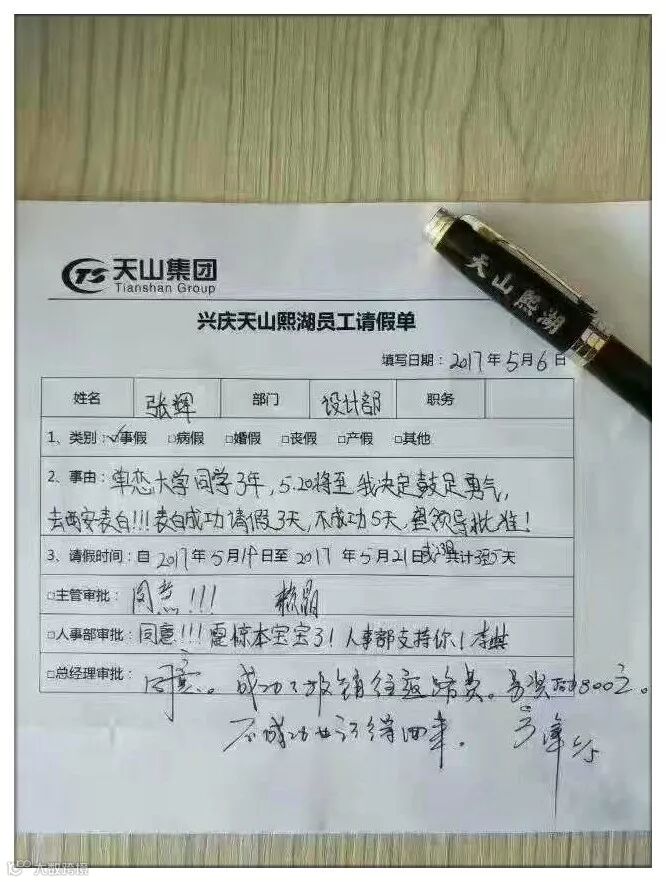 TS 天山集团
Tianshan Group
天山熙湖
兴庆天山熙湖员工请假单
填写日期：2017年5月6日
姓名 张辉 部门 设计部 职务
1、类别：✓事假 □病假 □婚假 □丧假 □产假 □其他
2、事由：单恋大学同学3年，5.20将至 我决定鼓足勇气，
去西安表白!!!表白成功请假3天，不成功5天，望领导批准！
3、请假时间：自2017年5月19日至2017年5月21日 共计3 5天
□主管审批：同意!!!
□人事部审批：同意!!!震惊本宝宝了！人事部支持你！李
□总经理审批：同意。成功了报销往返路费。另奖 800元。
不成功也记得回来。
大数跨境